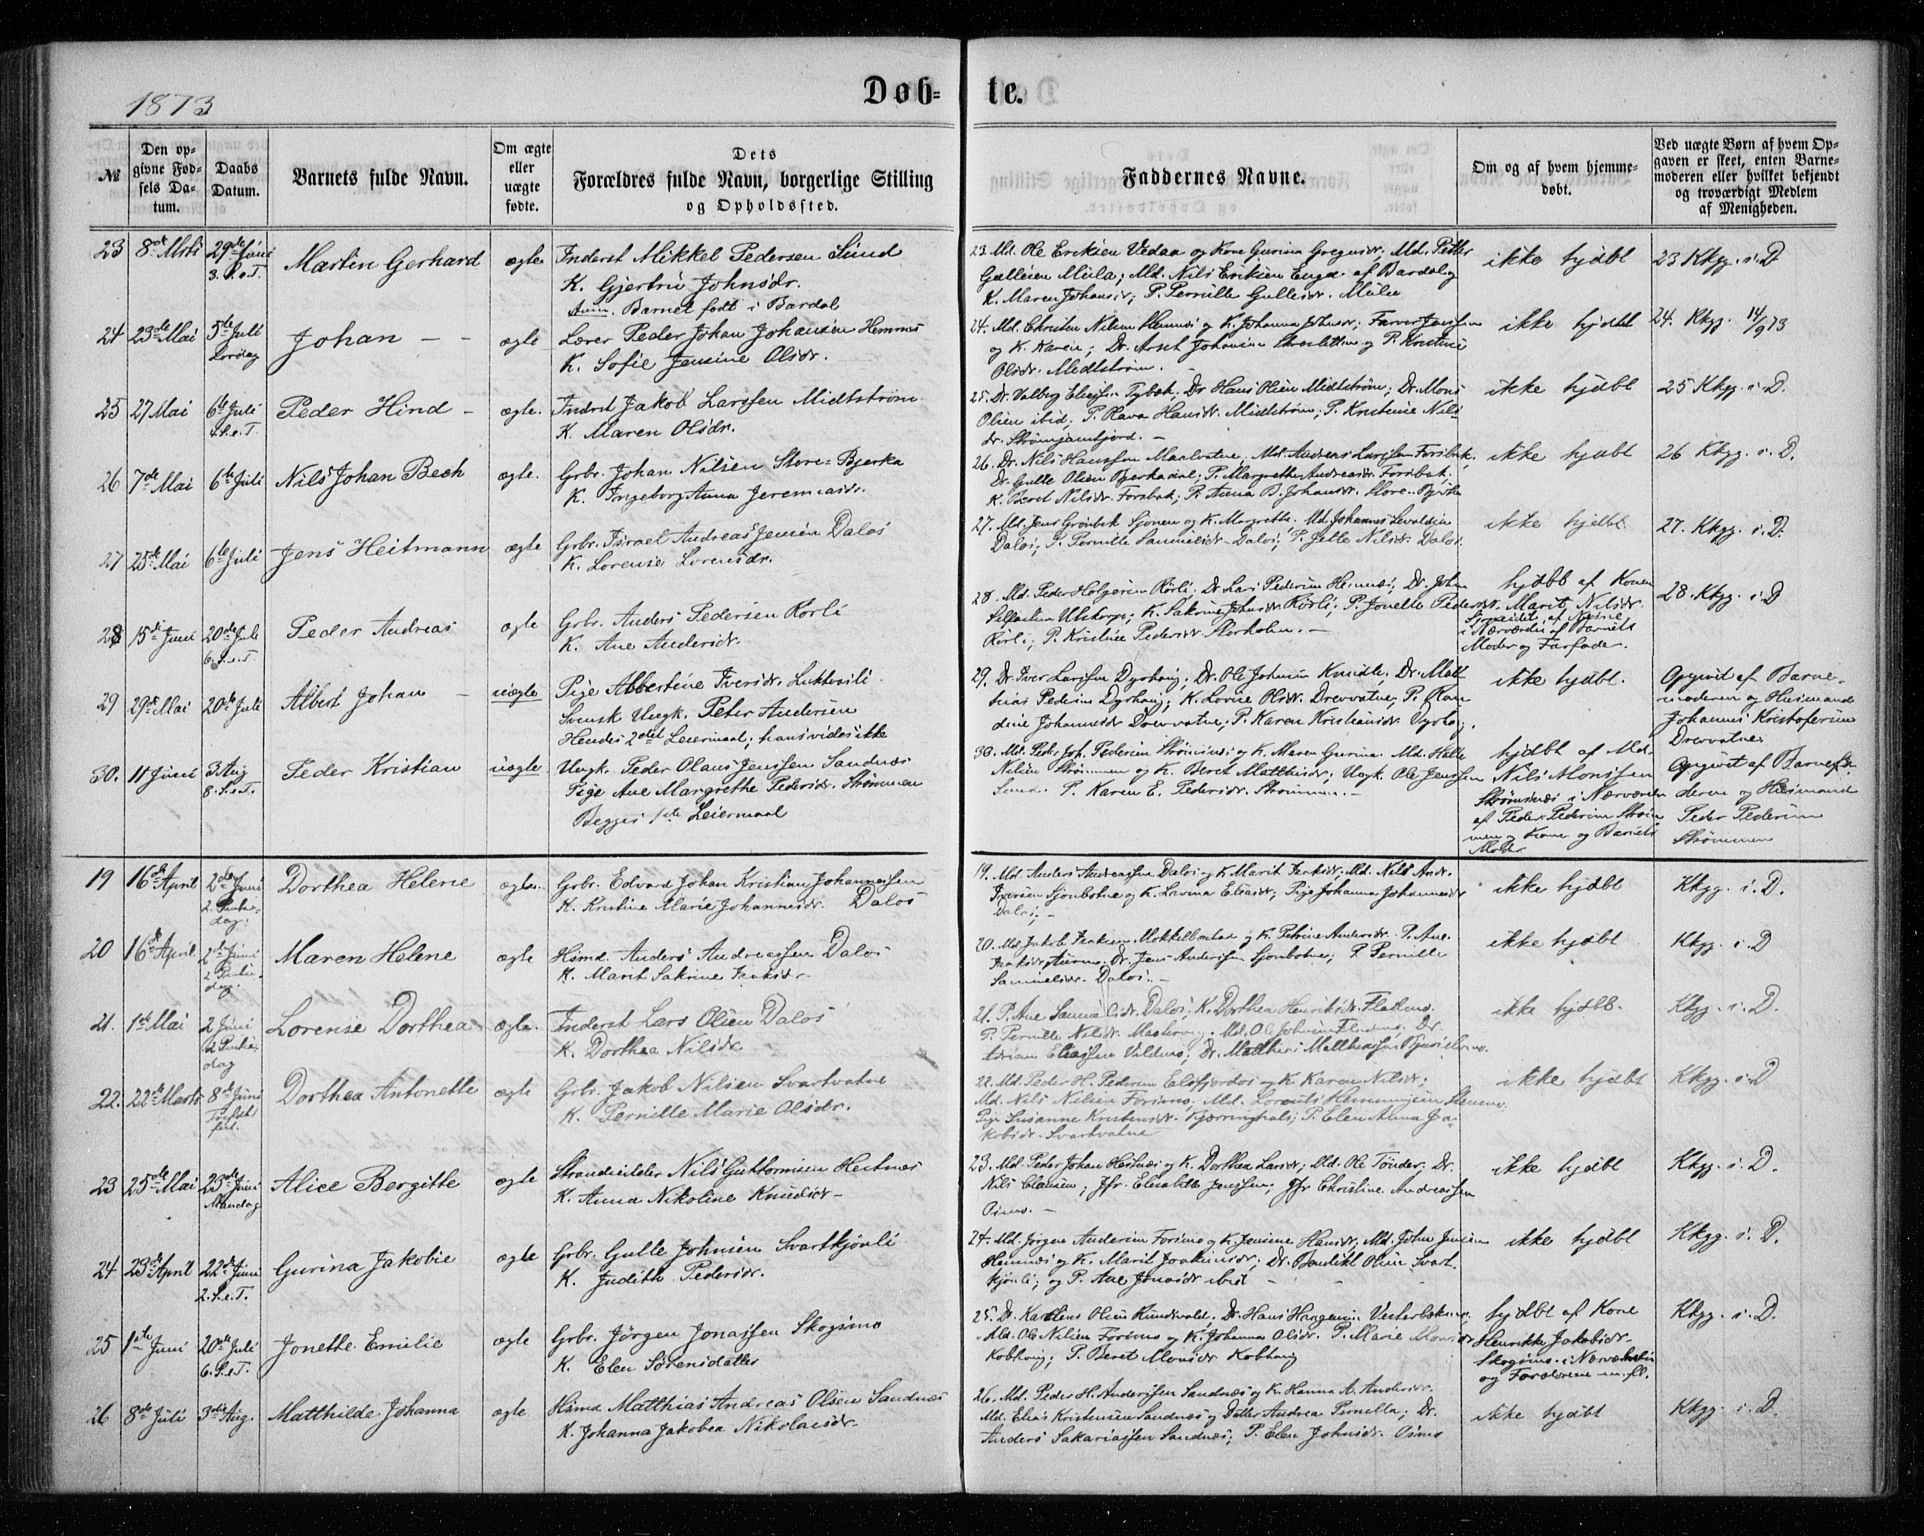 1873
Døb-
te.
№
Den op-
givne Fød-
sels Da-
tum.
Daabs
Datum.
Barnets fulde Navn.
Om ægte
eller
uægte
fødte.
Dets
Forældres fulde Navn, borgerlige Stilling
og Opholdssted.
Faddernes Navne.
Om og af hvem hjemme-
døbt.
Ved uægte Børn af hvem Op-
gaven er skeet, enten Barne-
moderen eller hvilket bekjendt
og troværdigt Medlem
af Menigheden.
23 8de Marts 29de Juni Martin Gerhard ægte Inderst Mikkel Pedersen Sund
3. S.e.T. K. Gjertru Johnsdr.
Anm. Barnet født i Bardal
23. Md. Ole Eriksen Vedaa og Kone Gurina Gregusdr, Md. Petter
Gullesen Mula, Md. Nils Eriksen Enga af Bardal og
K. Maren Johansdr; P. Pernille Gullesdr. Mula
ikke hjdbt 23 Kkgg. i. D
24 23de Mai 5te Juli Johan - - ægte Lærer Peder Johan Johansen Hemnes
Lørdag K. Sofie Jensine Olsdr.
24. Md. Christen Nilsen Hemnes og K. Johanna Johnsdr; Farver Jenssen
og K. Karen; Dr. Arnt Johansen og P. Kristine
Olsdr. Midtstrøm.
ikke hjdbt 24. Kkgg. 14/9 73
25 27 Mai 6te Juli Peder Hind - ægte. Indrst Jakob Larssen Midtstrøm
4. S.e.T. K. Maren Olsdr.
25. Dr. Valberg Eliassen Tybæk, Dr. Hans Olsen Midtstrøm; Dr. Mons
Olsen ibid; P. Olava Hansdr. Midtstrøm; P. Kristine Nils
dr. Strømsamfjord. -
ikke hjdbt 25 Kkgg. i. D.
26 7de Mai 6te Juli Nils Johan Bech ægte. Grbr. Johan Nilsen Store-Bjerka
K. Ingeborg Anna Jeremiasdr.
26. Dr. Nils Hanssen Maalvatne. Md. Andreas Larssen Forsbak,
Dr. Gulle Olsen Bjerkadal; P. Margrethe Andreasdr. Forsbak;
K. Beret Nilsdr. Forsbak; P. Anna B. Johansdr. Store-Bjerka
ikke hjdbt 26 Kkgg. i. D.
27 25de Mai 6te Juli Jens Heitmann ægte Grbr. Israel Andreas Jensen Dalos
K. Lorense Lorensdr.
27. Md. Jens Grønbek Sjonen og K. Margrethe. Md. Johannes
Dalos; P. Pernille Samuelsdr Dalos; P. Jette Nilsdr. Dalos.
ikke hjdbt. 27. Kkgg. i. D.
28 15de Juni 20de Juli Peder Andreas ægte Grbr. Anders Pedersen Rørli
6. S.e.T. K. Ane Andersdr.
28. Md. Peder Holgersen Rørli; Dr. Lars Pedersen Hemnes; Dr. John
Ulstorp; K. Sakrine Johnsdr Rørli; P. Jonette Pedersdr.
Rørli; P. Kristine Pedersdr. -
hjdbt af Konen
Marit Nilsdr.
i Nærværelse af Barnets
Moder og Farfader.
28. Kkgg. i D
29 29de Mai 20de Juli Albert Johan - uægte Pige Albertine Iversdr. Luktesili.
Svensk Ungk. Peter Andersen
Hendes 2det Leiermaal; hans vides ikke
29. Dr. Iver Larssen Dyrhaug; Dr. Ole Johnsen Knudli; Dr. Mat
hias Pedersen Dyrhaug; K. Lovise Olsdr. Drevvatne; P. Ran
dine Johannesdr Drevvatne; P. Karen Kristiansdr.
ikke hjdbt. Opgivet af Barne-
moderen og Husmand
Johannes Kristofersen
Drevvatne
30. 11 Juni 3 Aug Peder Kristian uægte Ungk. Peder Olaus Jenssen Sandnes
8. S.e.T. Pige Ane Margrethe Pedersdr. Strømmen
Begges 1ste Leiermaal
30. Md. Ped. Joh. Pedersen Strømsnes og K. Maren Gurina. Md. Halte
Nilsen Strømmen og K. Beret Matthisdr; Ungk. Ole Jenssen
Sund. P. Karen E. Pedersdr. Strømmen. -
hjdbt af Md.
Nils Monssen
Strømsnes i Nærværelse
af Peder Pedersen Strøm
men og Kone og Barnets
Moder
Opgivet af Barnefa-
deren og Husmand
Peder Pedersen
Strømmen
19 16de April 2den Juni Dorthea Helene ægte. Grbr. Edvard Johan Kristian Johannessen
2. Pintse- K. Kristine Marie Johannesdr. Dalos
dag.
19. Md. Anders Andreassen Dalos og K. Marit Isaksdr; Md. Nils Andr.
Iversen Sjonbotne og K. Lovina Eliasdr; Pige Johanna Johannesdr
Dalos; -
ikke hjdbt Kkgg. i. D.
20 16de April 2den Juni Maren Helene ægte Hsmd Anders Andreassen Dalos
2 Pintse- K. Marit Sakrine Isaksdr
dag.
20. Md. Jakob Isaksen og K. Petrine Andersdr. P. Ane
Isaksdr. Dr. Jens Andersen Sjonbotne; P. Pernille
Samuelsdr. Dalos. -
ikke hjdbt Kkgg. i. D
21. 1ste Mai 2 Juni Lorense Dorthea ægte. Inderst Lars Olsen Dalos
2 Pintse- K. Dorthea Nilsdr
dag
21. P. Ane Samuelsdr. Dalos; K. Dorthea Henriksdr. Flatmo.
P. Pernille Nilsdr. Md. Ole Johnsen Dr.
Adrian Eliassen Vildmo; Dr. Matthis Matthiassen
ikke hjdbt. Kkgg. i. D.
22. 22de Marts 8de Juni Dorthea Antonette ægte Grbr. Jakob Nilsen Svartvatne
Trefold. K. Pernille Marie Olsdr.
fest.
22. Md. Peder H. Pedersen Elsfjordos og K. Karen Nilsdr;
Md. Nils Nilsen Forsmo; Md. Lorents Hemmingsen
Pige Susanne Kristensdr. P. Elen Anna Ja-
kobsdr. Svartvatne
ikke hjdbt Kkgg. i. D
23 25de Mai 23de Juni Alice Bergitte ægte Strandsidder Nils Guttormsen Hestnes
Mandag K. Anna Nikoline Knudsdr -
23. Md. Peder Johan Hestnes og K. Dorthea Larsdr; Md. Ole Tønder, Dr.
Nils Clausen; Jfr. Elisabeth Jenssen; Jfr Christine Andreassen
Osmo. -
ikke hjdbt Kkgg. i. D.
24 23de April 22de Juni Gurina Jakobie ægte Grbr. Gulle Johnsen Svartkjønli
2. S.e.T. K. Judith Pedersdr.
24. Md. Jørgen Andersen Forsmo og K. Jensine Hansdr; Md. John Jensen
Hemnes og K. Marit Joakimsdr; Dr. Bendikt Olsen Svart
kjønli; og P. Ane Jonasdr ibid - -
ikke hjdbt Kkgg. i. D.
25 1ste Juni 20de Juli Jonette Emilie ægte Grbr. Jørgen Jonassen Skogsmo
6. S.e.T. K. Elen Sørensdatter
25. D. Karolius Olsen Rundvald; Dr. Hans Hangen Vesterbekmo
Md. Ole Nilsen Forsmo og K. Johanna Olsdr. P. Marie Monsdr
Kobhaug; P. Beret Monsdr Kobhaug
hjdbt af Kone
Henrikke Jakobsdr.
Skogsmo i Nærværelse
og Forældrene m. fl.
Kkgg. i. D.
26 8de Juli 3die Aug. Matthilde Johanna ægte Hsmd Matthias Andreas Olsen Sandnes
K. Johanna Jakobea Nikolaisdr.
26. Md. Peder H. Anderssen Sandnes og K. Hanna A. Andersdr.
Md. Elias Kristensen Sandnes og Datter Andrea Pernella; Dr.
Anders Sakariassen Sandnes; P. Elen Johnsdr. Osmo
ikke hjdbt Kkgg. i. D.